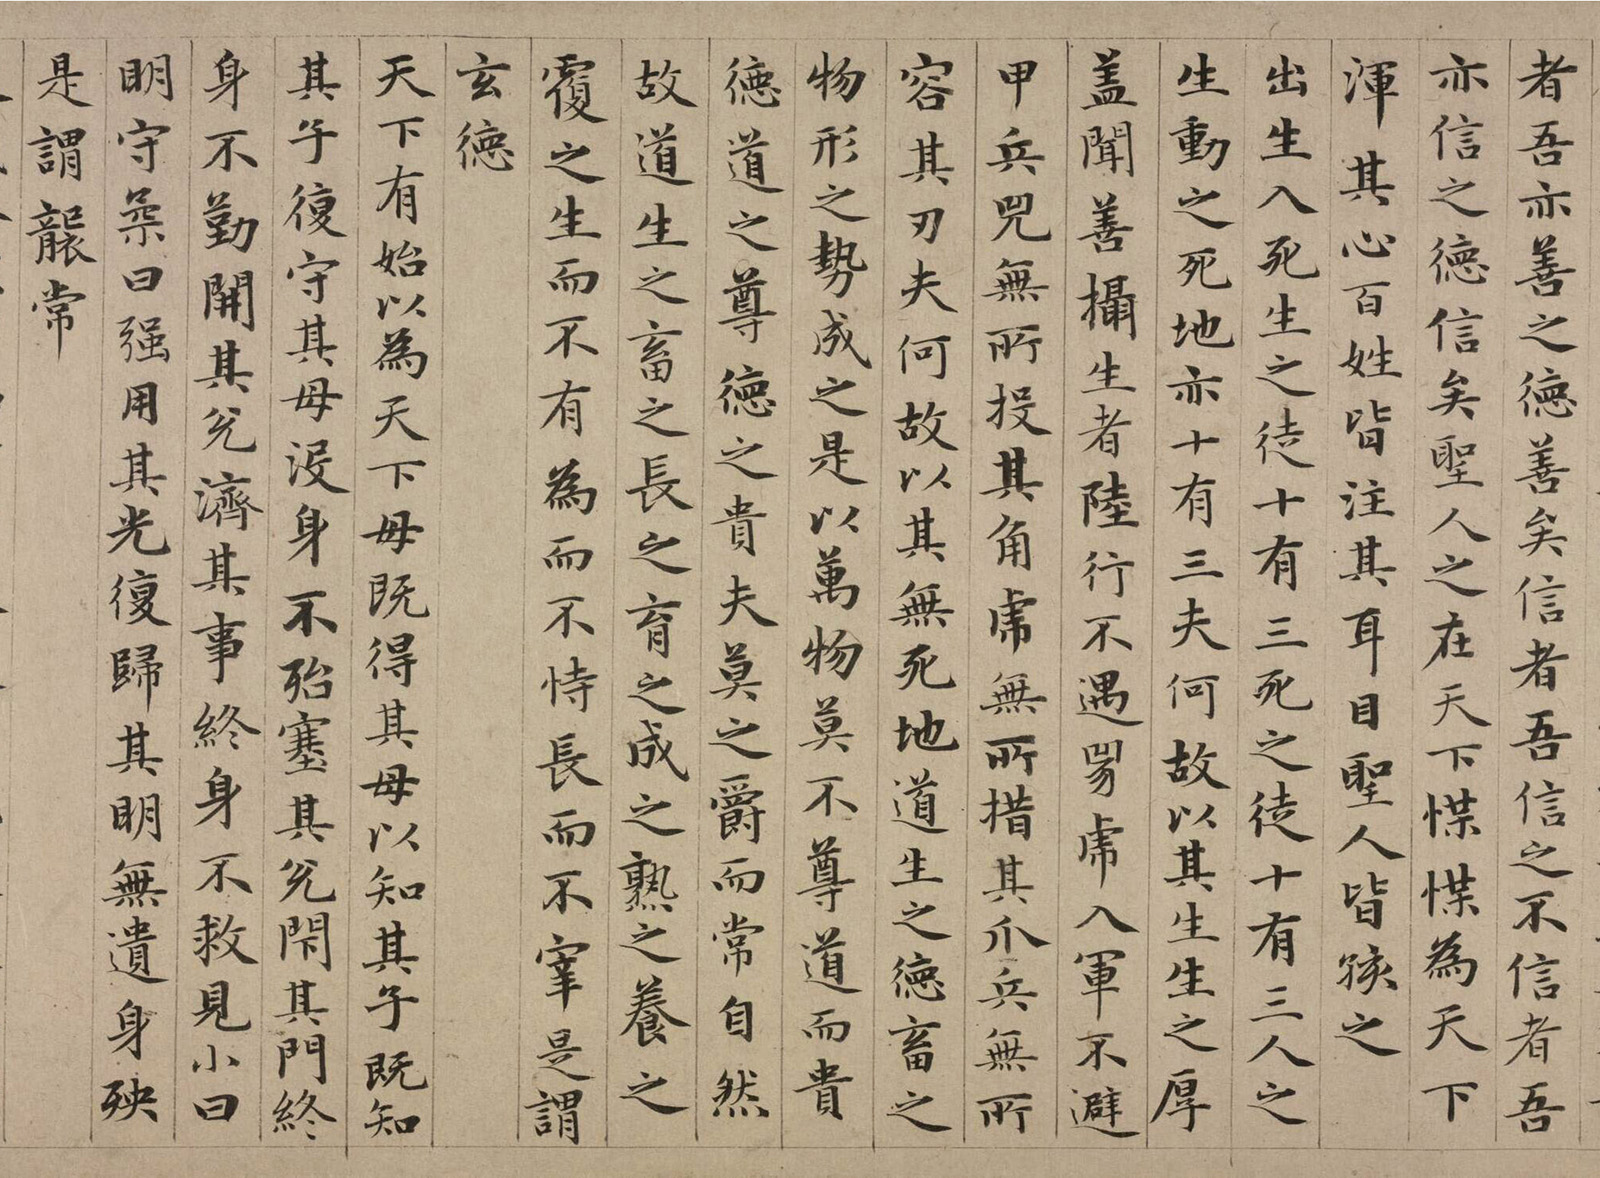 者吾亦善之德善矣信者吾信之不信者吾
亦信之德信矣聖人之在天下惵惵為天下
渾其心百姓皆注其耳目聖人皆孩之
出生入死生之徒十有三死之徒十有三人之
生動之死地亦十有三夫何故以其生生之厚
盖聞善攝生者陸行不遇兕虎入軍不避
甲兵兕無所投其角虎無所措其爪兵無所
容其刃夫何故以其無死地道生之德畜之
物形之勢成之是以萬物莫不尊道而貴
德道之尊德之貴夫莫之爵而常自然
故道生之畜之長之育之成之熟之養之
覆之生而不有為而不恃長而不宰是謂
玄德
天下有始以為天下母既得其母以知其子既知
其子復守其母没身不殆塞其兊閇其門終
身不勤開其兊濟其事終身不救見小曰
明守柔曰强用其光復歸其明無遺身殃
是謂襲常